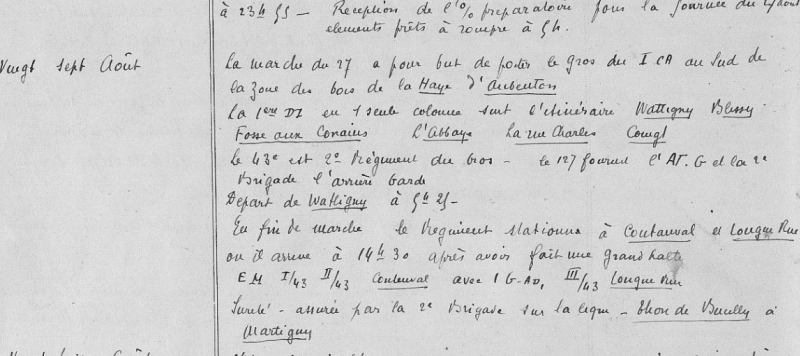 à 23h55 – Reception de l'o/o preparatoire pour la journée du 27 Août
elements prêts à rompre à 5h.
Vingt sept Août
La marche du 27 a pour but de porter le gros du I CA au Sud de
la zone des bois de la Haye d'Aubenton
La 1ere DI en 1 seule colonne suit l'itinéraire Wattigny Blissy
Fosse aux Conains L'Abbaye La rue Charles Coingt
Le 43e est 2e Régiment du gros – Le 127 fournit l'AT. G et la 2e
Brigade l'arrière Garde
Depart de Wattigny à 5h25 –
En fin de marche le Regiment stationne à Coutenval et Longue Rue
ou il arrive à 14h30 après avoir fait une grand halte
EM I/43 II/43 Coutenval avec 1 G-AD, III/43 Longue Rue
Sureté – assurée par la 2e Brigade sur la ligne – Thon de Bucilly à
Martigny